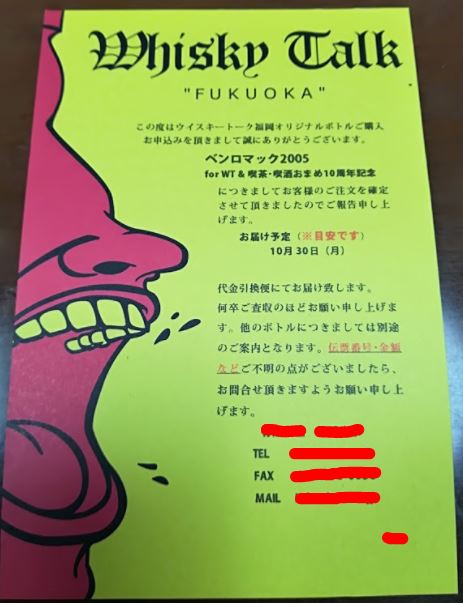 Whisky Talk
"FUKUOKA"
この度はウイスキートーク福岡オリジナルボトルご購入
お申込みを頂きまして誠にありがとうございます。
ベンロマック2005
for WT & 喫茶・喫酒おまめ10周年記念
につきましてお客様のご注文を確定
させて頂きましたのでご報告申し上
げます。
お届け予定（※目安です）
10月30日（月）
代金引換便にてお届け致します。
何卒ご査収のほどお願い申し上げま
す。他のボトルにつきましては別途
のご案内となります。伝票番号・金額
などご不明の点がございましたら、
お問合せ頂きますようお願い申し上
げます。
TEL
FAX
MAIL